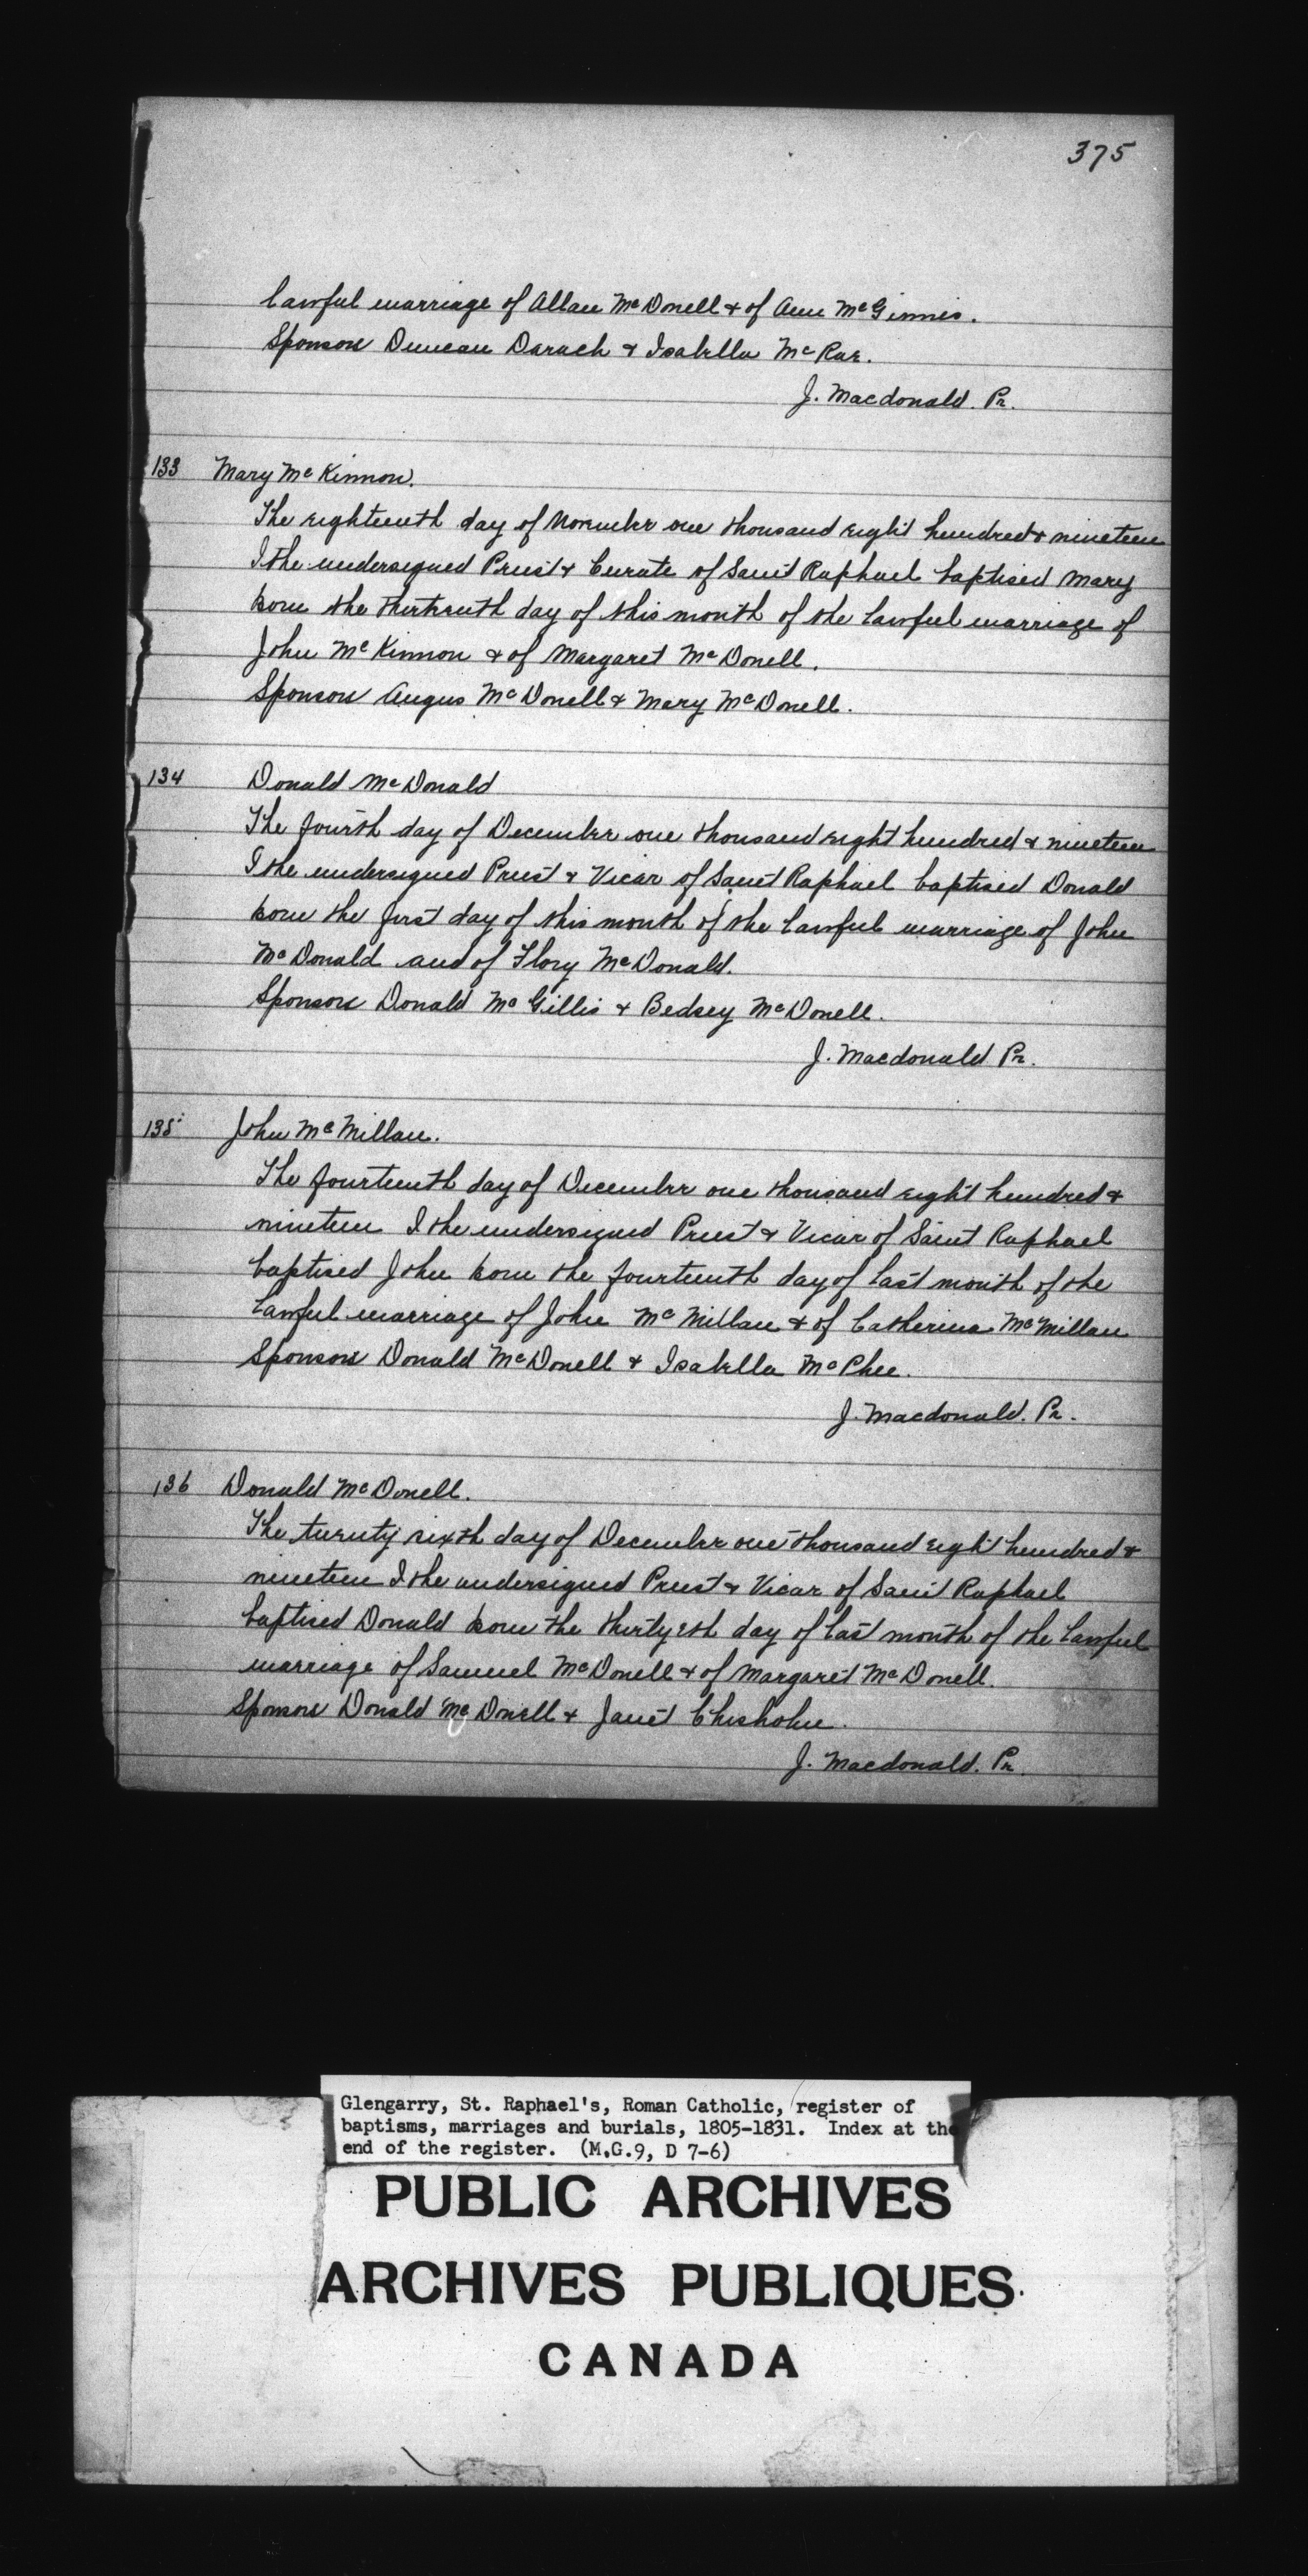 375
lawful marriage of Allan McDonell & of Ann McGinnis.
Sponsors Duncan Darach & Isabella McRae.
J. Macdonald. Pr.
133 Mary McKinnon.
The eighteenth day of November one thousand eight hundred & nineteen
I the undersigned Priest & Curate of Saint Raphael baptised Mary
born the thirteenth day of this month of the lawful marriage of
John McKinnon & of Margaret McDonell.
Sponsors Angus McDonell & Mary McDonell.
134 Donald McDonald
The fourth day of December one thousand eight hundred & nineteen
I the undersigned Priest & Vicar of Saint Raphael baptised Donald
born the first day of this month of the lawful marriage of John
McDonald and of Flory McDonald.
Sponsors Donald McGillis & Bedsey McDonell.
J. Macdonald Pr.
135 John McMillan.
The fourteenth day of December one thousand eight hundred &
nineteen I the undersigned Priest & Vicar of Saint Raphael
baptised John born the fourteenth day of last month of the
lawful marriage of John McMillan & of Catherine McMillan
Sponsors Donald McDonell & Isabella McPhee.
J. Macdonald. Pr.
136 Donald McDonell.
The twenty sixth day of December one thousand eight hundred &
nineteen I the undersigned Priest & Vicar of Saint Raphael
baptised Donald born the thirtyeth day of last month of the lawful
marriage of Samuel McDonell & of Margaret McDonell.
Sponsors Donald McDonell & Janet Chisholm.
J. Macdonald. Pr.
Glengarry, St. Raphael's, Roman Catholic, register of
baptisms, marriages and burials, 1805-1831. Index at the
end of the register. (M.G.9, D 7-6)
PUBLIC ARCHIVES
ARCHIVES PUBLIQUES
CANADA